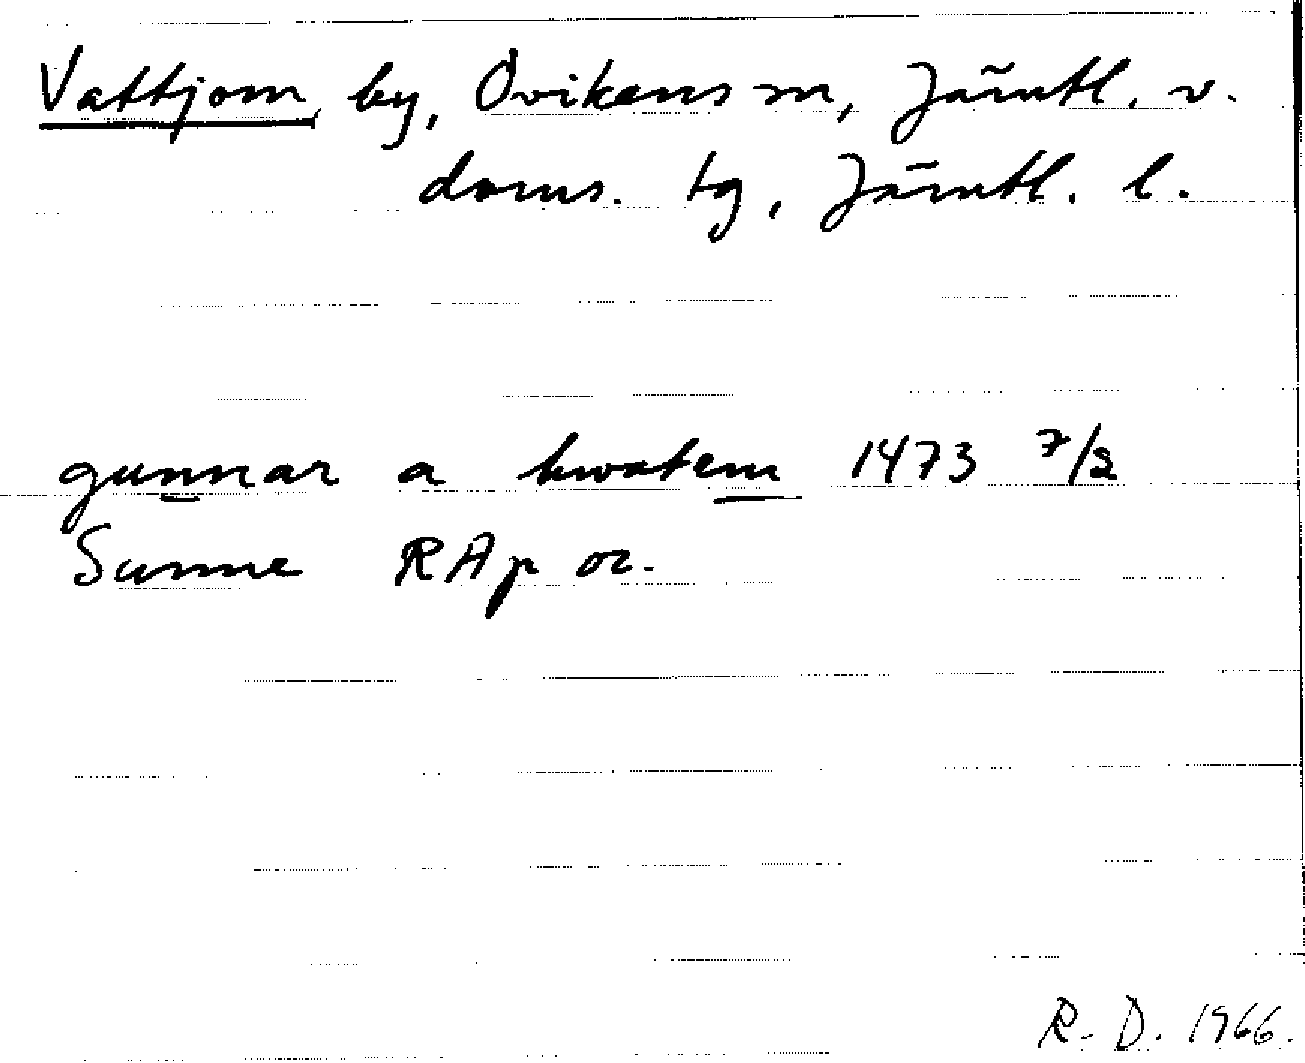 Vattjom by, Ovikens sn, Jämtl. v.
doms. tg, Jämtl. l.
gunnar a hwatem 1473 7/2
Sunne RAp or.
R. D. 1966.